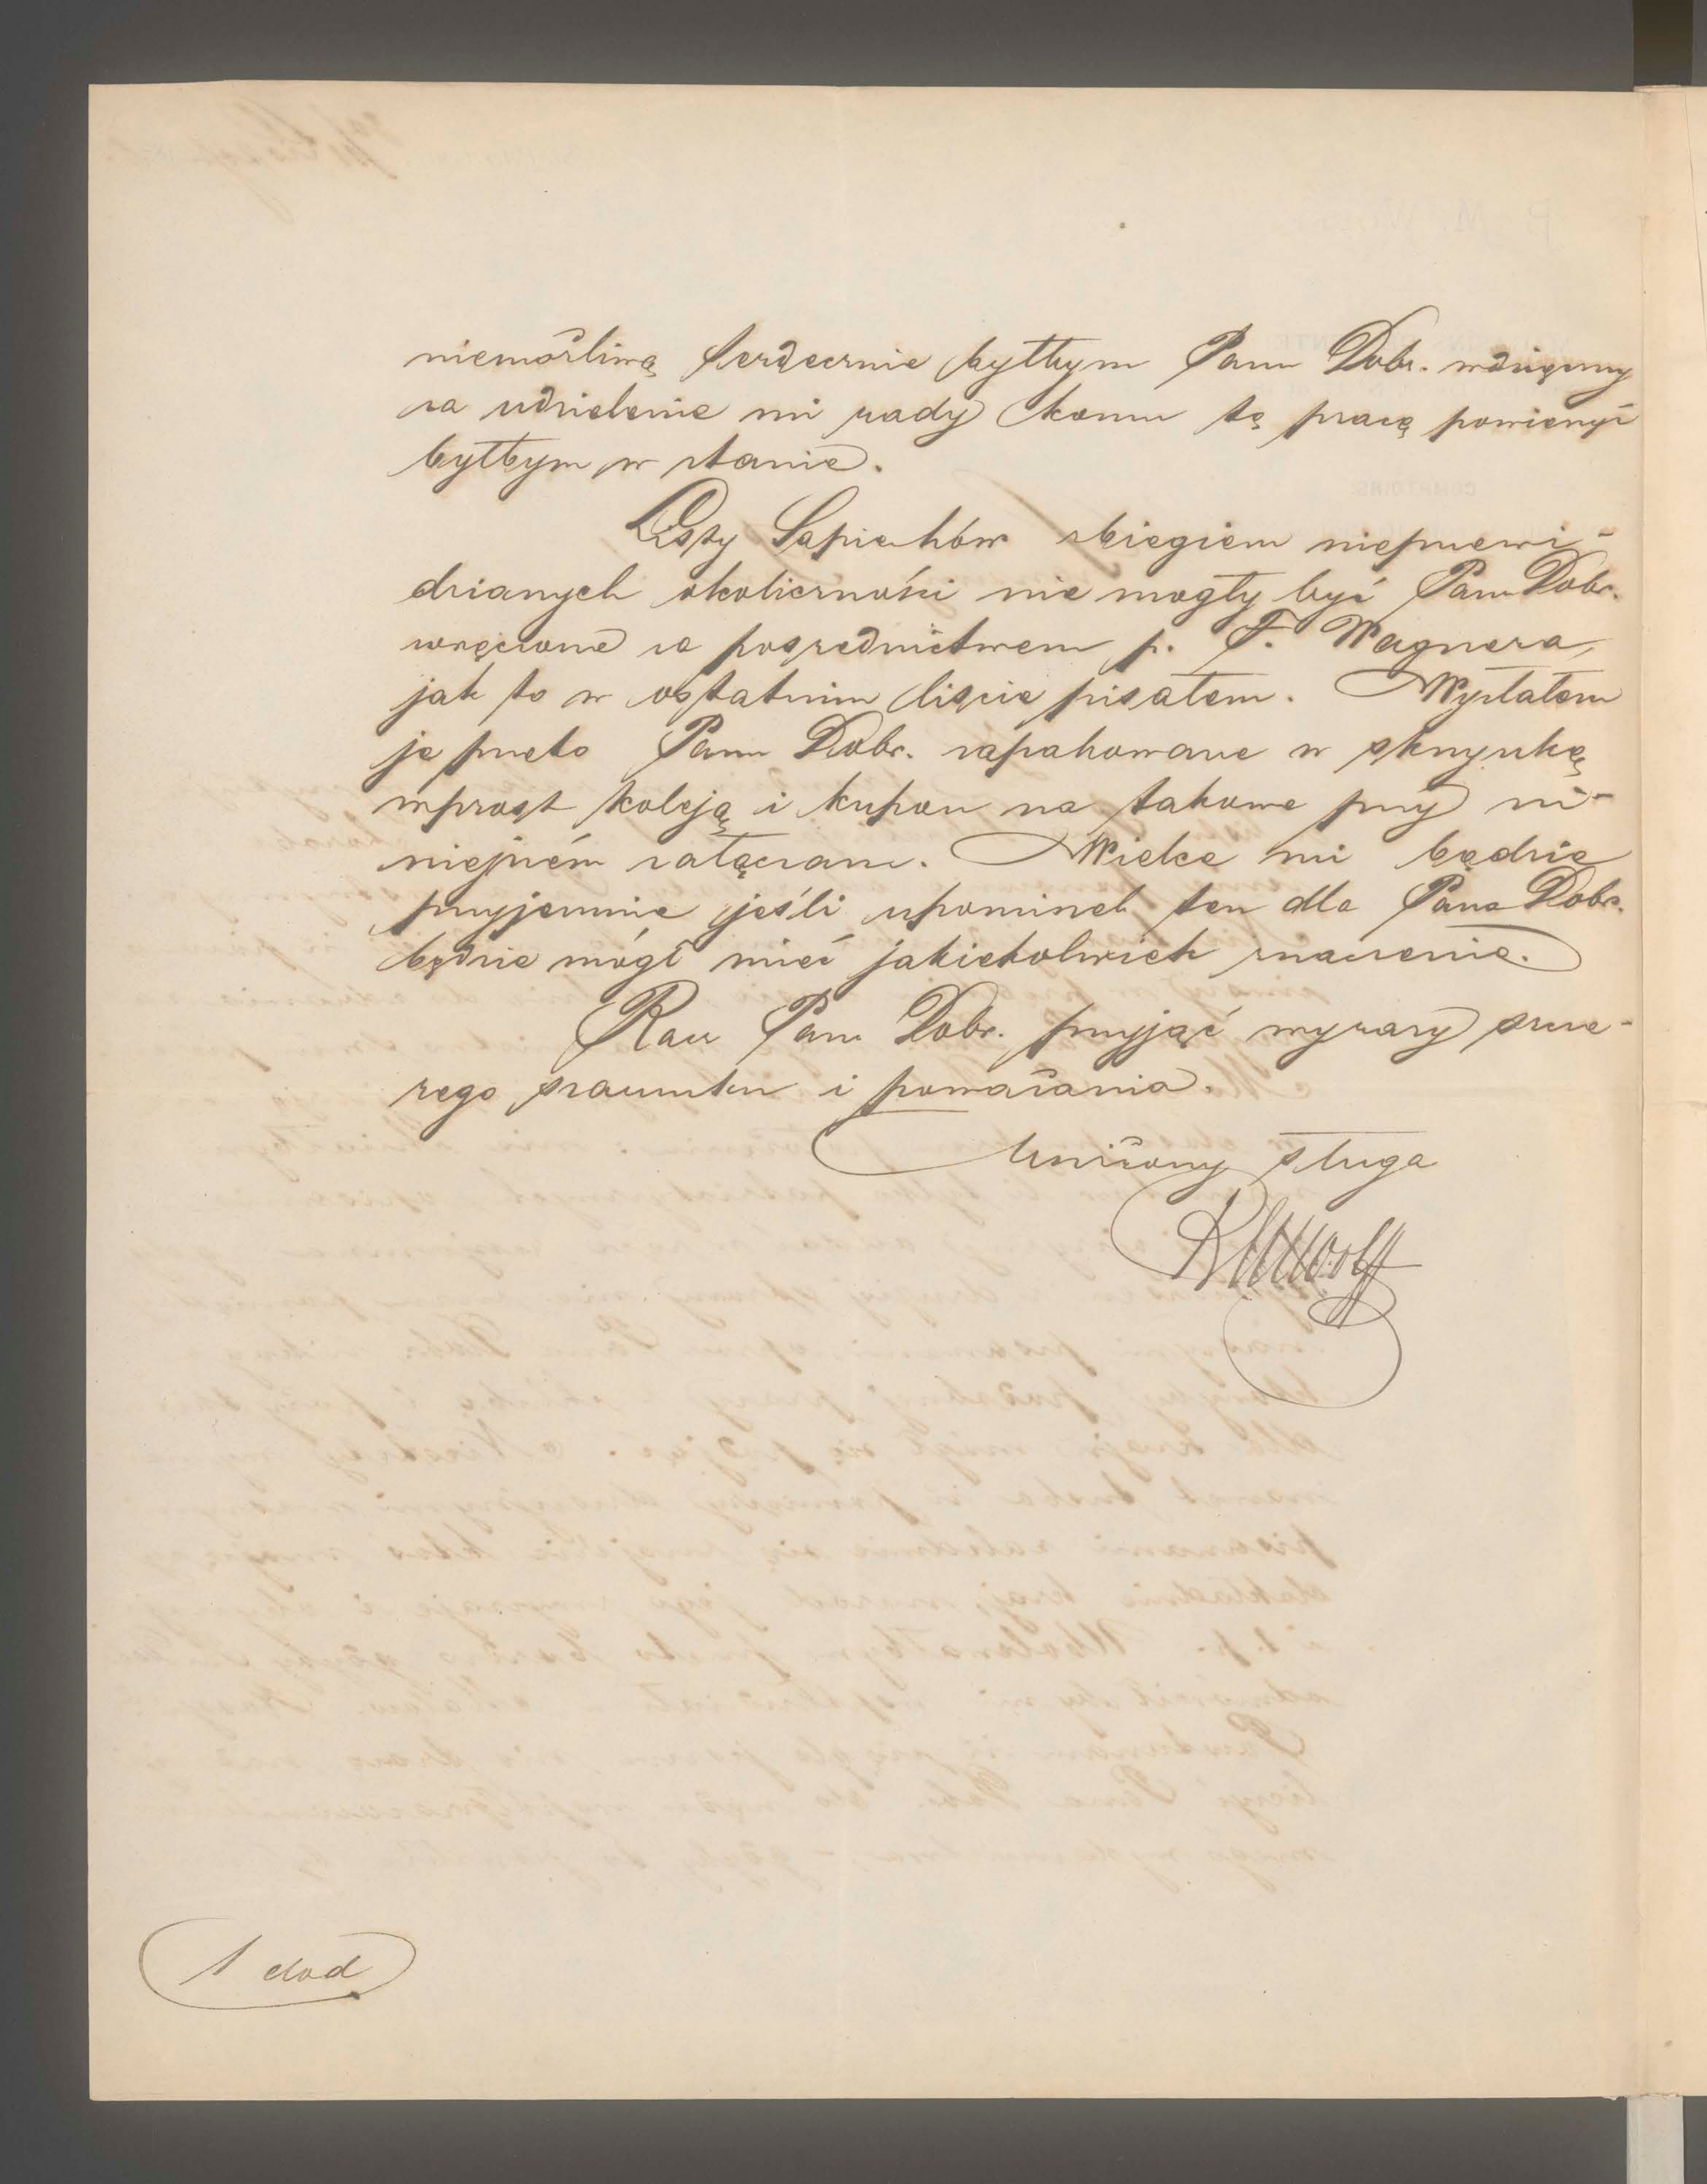 niemożliwą serdecznie byłbym Panu Dobr. wdzięczny
za udzielenie mi rady komu tę pracę powierzyć
byłbym w stanie.
Listy Sapiehów zbiegiem nieprzewi-
dzianych okoliczności nie mogły być Panu Dobr.
wręczone za pośrednictwem p. F. Wagnera,
jak to w ostatnim liście pisałem. Wysłałem
je przeto Panu Dobr. zapakowane w skrzynkę
wprost koleją i kupon na takowe przy ni-
niejszém załączam. Wielce mi będzie
przyjemnie jeśli upominek ten dla Pana Dobr.
będzie mógł mieć jakiekolwiek znaczenie.
Racz Pan Dobr. przyjąć wyrazy szcze-
rego szacunku i poważania.
Uniżony sługa
Wolff
1 dod